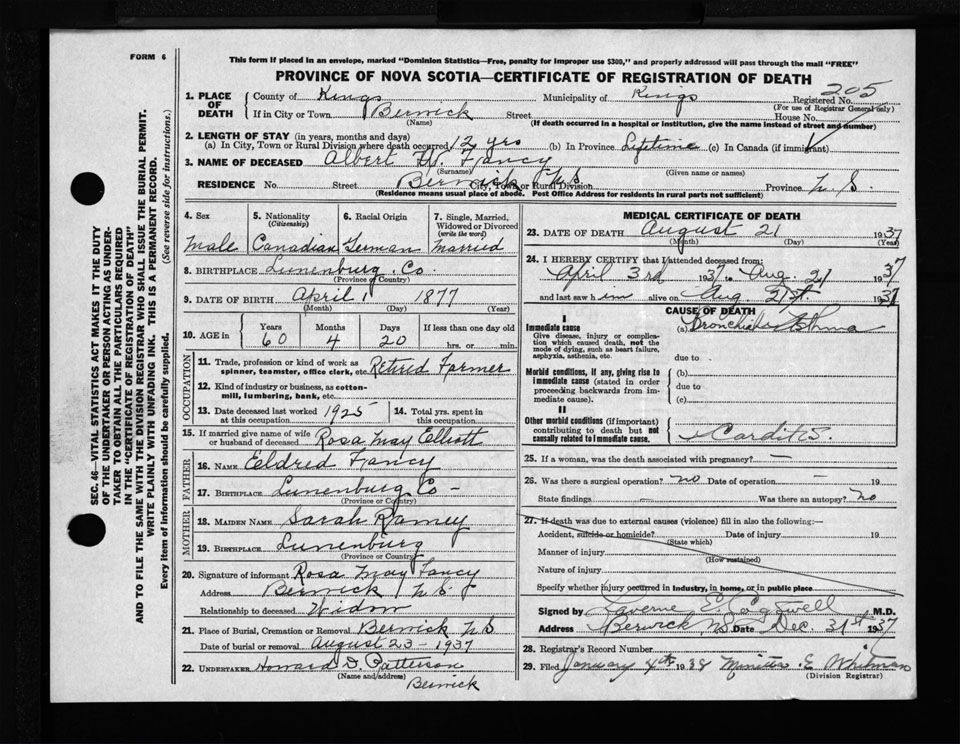 FORM 6
This form if placed in an envelope, marked "Dominion Statistics—Free, penalty for improper use $300," and properly addressed will pass through the mail "FREE"
PROVINCE OF NOVA SCOTIA—CERTIFICATE OF REGISTRATION OF DEATH
SEC. 46—VITAL STATISTICS ACT MAKES IT THE DUTY
OF THE UNDERTAKER OR PERSON ACTING AS UNDER-
TAKER TO OBTAIN ALL THE PARTICULARS REQUIRED
IN THE "CERTIFICATE OF REGISTRATION OF DEATH"
AND TO FILE THE SAME WITH THE DIVISION REGISTRAR WHO SHALL ISSUE THE BURIAL PERMIT.
WRITE PLAINLY WITH UNFADING INK. THIS IS A PERMANENT RECORD.
Every item of information should be carefully supplied. (See reverse side for instructions.)
1. PLACE OF DEATH
County of Kings Municipality of Kings Registered No. 205
(For use of Registrar General only)
If in City or Town Berwick Street House No.
(Name) (If death occurred in a hospital or institution, give the name instead of street and number)
2. LENGTH OF STAY (in years, months and days)
(a) In City, Town or Rural Division where death occurred 12 yrs (b) In Province Lifetime (c) In Canada (if immigrant)
3. NAME OF DECEASED Albert W. Fancy
(Surname) (Given name or names)
RESIDENCE No. Street Berwick N.S. City, Town or Rural Division Province N.S.
(Residence means usual place of abode. Post Office Address for residents in rural parts not sufficient)
4. Sex 5. Nationality (Citizenship) 6. Racial Origin 7. Single, Married, Widowed or Divorced (write the word)
Male Canadian German Married
8. BIRTHPLACE Lunenburg Co.
(Province or Country)
9. DATE OF BIRTH April 1 1877
(Month) (Day) (Year)
10. AGE in Years Months Days If less than one day old
60 4 20 hrs. or min.
OCCUPATION
11. Trade, profession or kind of work as spinner, teamster, office clerk, etc. Retired Farmer
12. Kind of industry or business, as cotton-mill, lumbering, bank, etc.
13. Date deceased last worked at this occupation 1925 14. Total yrs. spent in this occupation
15. If married give name of wife or husband of deceased Rosa May Elliott
FATHER
16. NAME Eldred Fancy
17. BIRTHPLACE Lunenburg Co -
(Province or Country)
MOTHER
18. MAIDEN NAME Sarah Ramey
19. BIRTHPLACE Lunenburg
(Province or Country)
20. Signature of informant Rosa May Fancy
Address Berwick N S
Relationship to deceased Widow
21. Place of Burial, Cremation or Removal Berwick N S
Date of burial or removal August 23 - 1937
22. UNDERTAKER Howard D. Patterson
(Name and address) Berwick
MEDICAL CERTIFICATE OF DEATH
23. DATE OF DEATH August 21 1937
(Month) (Day) (Year)
24. I HEREBY CERTIFY that I attended deceased from:
April 3rd 1937 to Aug. 21 1937
and last saw him alive on Aug. 21st. 1937
CAUSE OF DEATH
I
Immediate cause (a) Bronchial Asthma
Give disease, injury or complication which caused death, not the mode of dying, such as heart failure, asphyxia, asthenia, etc. due to
Morbid conditions, if any, giving rise to immediate cause (stated in order proceeding backwards from immediate cause). (b) due to (c)
II
Other morbid conditions (if important) contributing to death but not causally related to immediate cause. Carditis.
25. If a woman, was the death associated with pregnancy? —
26. Was there a surgical operation? no Date of operation - 19
State findings — Was there an autopsy? No
27. If death was due to external causes (violence) fill in also the following:—
Accident, suicide or homicide? Date of injury 19
(State which)
Manner of injury
(How sustained)
Nature of injury
Specify whether injury occurred in Industry, in home, or in public place
Signed by Laverne E. Cogswell M.D.
Address Berwick, NS Date Dec. 31st 1937
28. Registrar's Record Number
29. Filed January 4th 1938 E. Whitman
(Division Registrar)